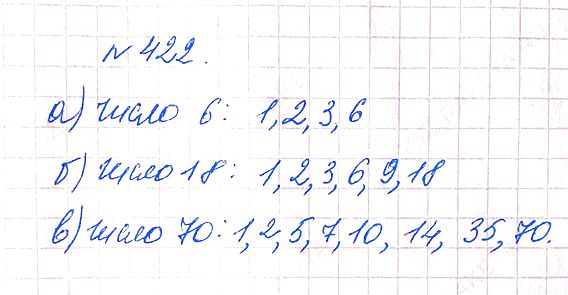 № 422.
а) число 6: 1, 2, 3, 6
б) число 18: 1, 2, 3, 6, 9, 18
в) число 70: 1, 2, 5, 7, 10, 14, 35, 70.